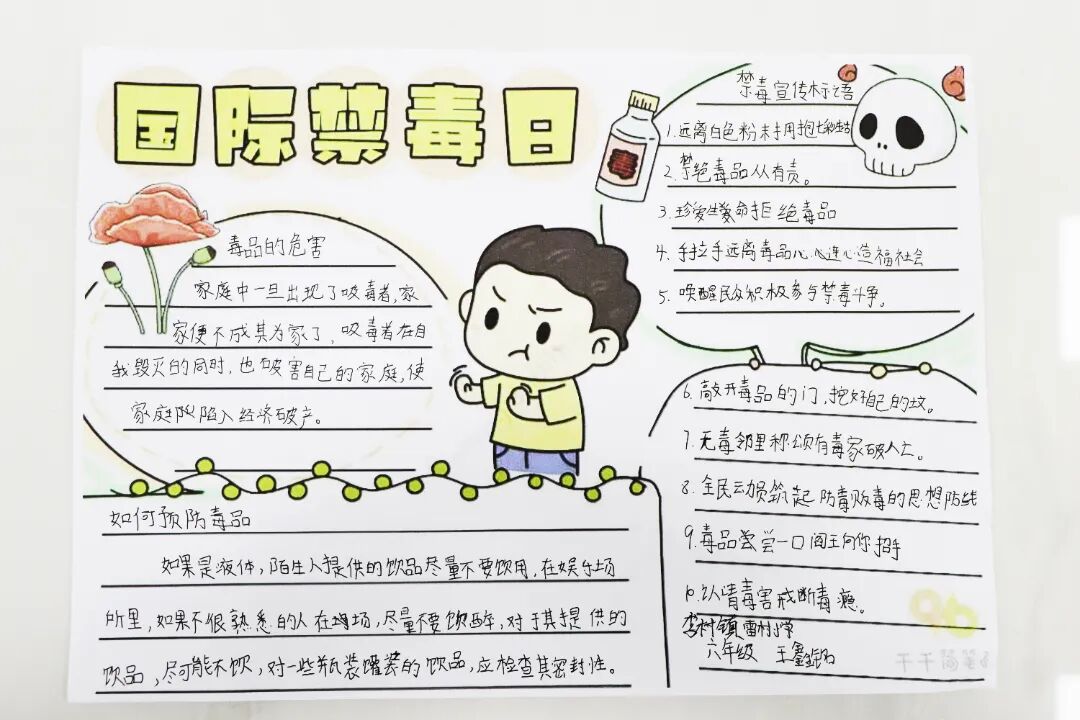 国际禁毒日
毒品的危害
家庭中一旦出现了吸毒者,家
家便不成其为家了,吸毒者在自
我毁灭的同时,也破害自己的家庭,使
家庭队陷入经济破产。
如何预防毒品
如果是液体,陌生人提供的饮品尽量不要饮用,在娱乐场
所里,如果不很熟悉的人在场,尽量不要饮醉,对于其提供的
饮品,尽可能不饮,对一些瓶装罐装的饮品,应检查其密封性。
毒
禁毒宣传标语
1.远离白色粉末拥抱
2.禁绝毒品从有责。
3.珍爱生命拒绝毒品
4.手拉手远离毒品心心连心造福社会
5.唤醒民众积极参与禁毒斗争。
6.敲开毒品的门,挖好自己的坟。
7.无毒邻里称颂有毒家破人亡。
8.全民动员筑起防毒贩毒的思想防线
9.毒品尝尝一口阎王向你招手
10.认清毒害戒断毒瘾。
李村镇雷村小学
六年级 王鑫
千千简笔